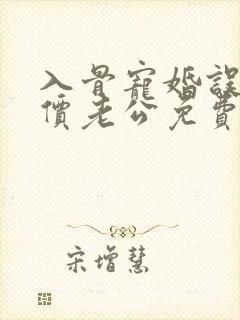 入骨寵婚誤
價老公免費
宋增慧